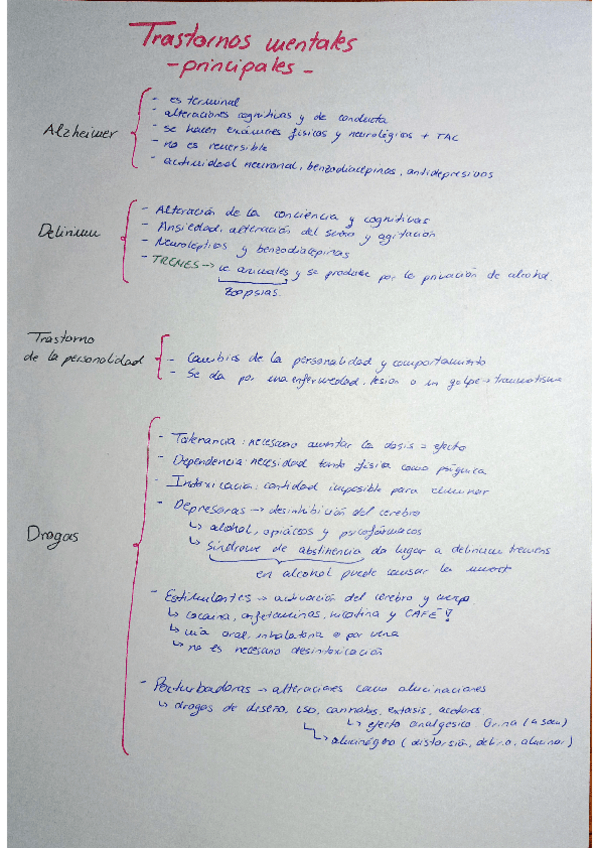 Trastornos mentales
- principales -
Alzheimer
- es terminal
- alteraciones cognitivas y de conducta
- se hacen exámenes físicos y neurológios + TAC
- no es reversible
- actividad neuronal, benzodiacepinas, antidepresivos
Delirium
- Alteración de la conciencia y cognitivas
- Ansiedad, alteración del sueño y agitación
- Neurolépticos y benzodiacepinas
- TREMES → ve animales y se produce por la privación de alcohol.
zoopsias.
Trastorno
de la personalidad
- Cambios de la personalidad y comportamiento
- Se da por una enfermedad, lesion o un golpe → traumatismo
Drogas
- Tolerancia: necesario aumentar la dosis = efecto
- Dependencia: necesidad tanto física como psíquica
- Intoxicacia: cantidad imposible para eliminar
- Depresoras → desinhibición del cerebro
↳ alcohol, opiáceos y psicofármacos
↳ síndrome de abstinencia da lugar a delirium tremens
en alcohol puede causar la muerte
- Estimulantes → activación del cerebro y cuerpo
↳ cocaina, anfetaminas, nicotina y CAFÉ!
↳ vía oral, inhalatoria o por vena
↳ no es necesario desintoxicación
- Perturbadoras → alteraciones como alucinaciones
↳ drogas de diseño, LSD, cannabis, extasis,
↳ efecto analgesico
↳ alucinógeno (distorsión, delirio, alucinar)